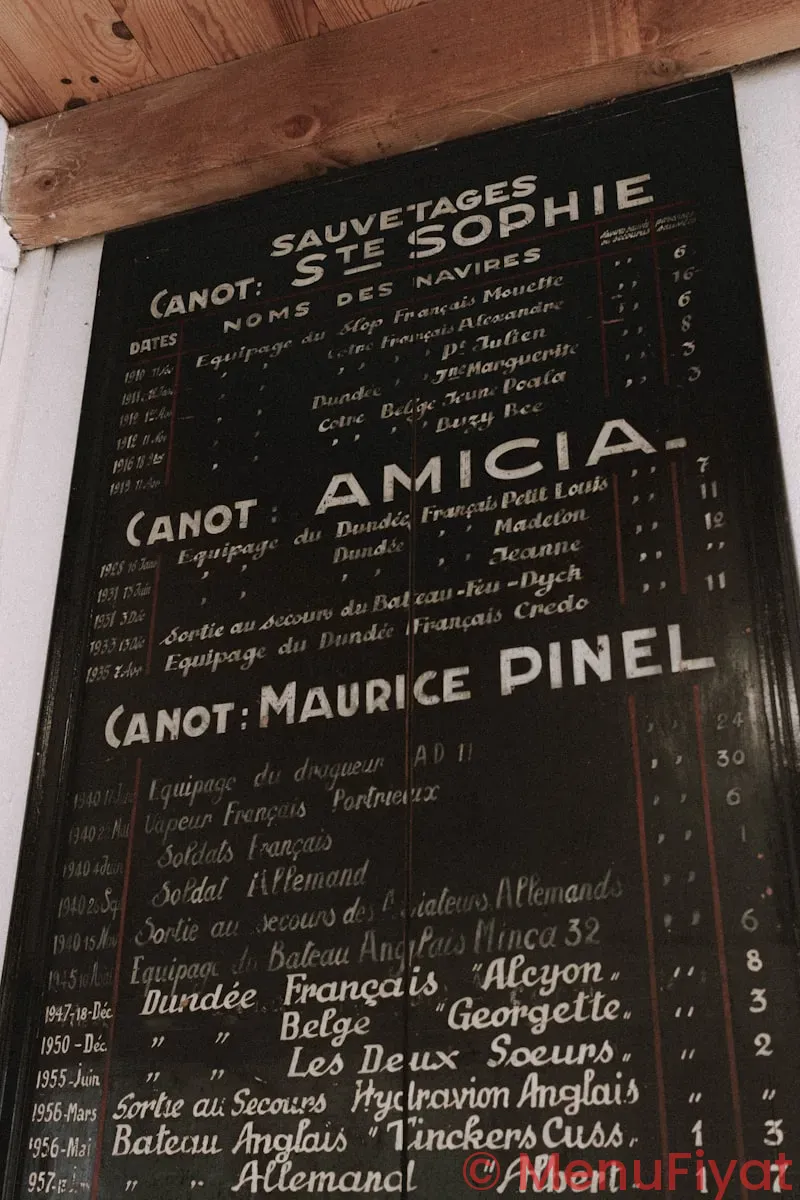 SAUVETAGES
CANOT: STE SOPHIE
DATES NOMS DES NAVIRES
1910 Equipage du Slop Français Mouette ,, 6
1911 ,, ,, Cotre Français Alexandre ,, 16
1912 ,, ,, ,, ,, Pt Julien ,, 6
1912 ,, ,, Dundée ,, ,, Jne Marguerite ,, 8
1916 Cotre Belge Jeune Poala ,, 3
1919 ,, ,, ,, Buzy Bee ,, 3
CANOT: AMICIA
1928 16 Equipage du Dundée Français Petit Louis ,, 7
1931 15 Juin ,, ,, Dundée ,, ,, Madelon ,, 11
1931 3 Déc ,, ,, ,, ,, Jeanne ,, 12
1933 13 Déc Sortie au secours du Bateau-Feu-Dyck ,, ,,
1935 7 Avr Equipage du Dundée Français Credo ,, 11
CANOT: MAURICE PINEL
1940 Equipage du dragueur AD 11 ,, 24
1940 Mai Vapeur Français Portrieux ,, 30
1940 4 Juin Soldats Français ,, 6
1940 Sep Soldat Allemand ,, 1
1940 15 Nov Sortie au secours des Aviateurs Allemands ,,
1945 Equipage du Bateau Anglais Minca 32 ,, 6
1947-18-Déc Dundée Français "Alcyon" ,, 8
1950-Déc. ,, ,, Belge "Georgette" ,, 3
1955-Juin ,, ,, Les Deux Soeurs" ,, 2
1956-Mars Sortie au Secours Hydravion Anglais ,, ,,
1956-Mai Bateau Anglais "TinckersCuss" 1 3
957 ,, ,, Allemand "Albert 1 7
© MenuFiyat